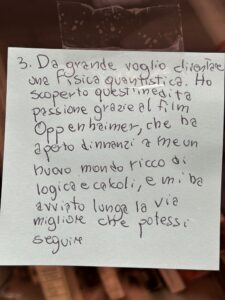 3. Da grande voglio diventare
una fisica quantistica. Ho
scoperto quest'inedita
passione grazie al film
Oppenhaimer, che ha
aperto dinnanzi a me un
nuovo mondo ricco di
logica e calcoli, e mi ha
avviato lungo la via
migliore che potessi
seguire